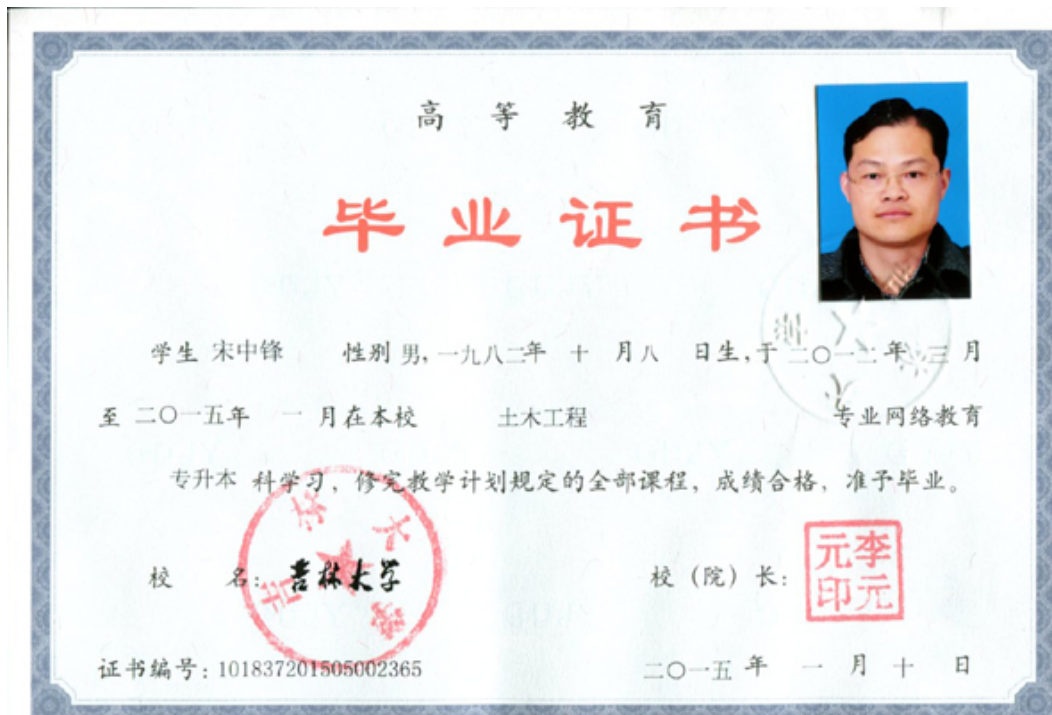 高等教育
毕业证书
学生 宋中锋 性别 男,一九八二年 十 月八 日生,于 二〇一二年 三 月
至 二〇一五年 一 月在本校 土木工程 专业网络教育
专升本 科学习,修完教学计划规定的全部课程,成绩合格,准予毕业。
校 名: 吉林大学
吉林大学
校(院)长:
李元元印
证书编号:101837201505002365
二〇一五 年 一 月 十 日